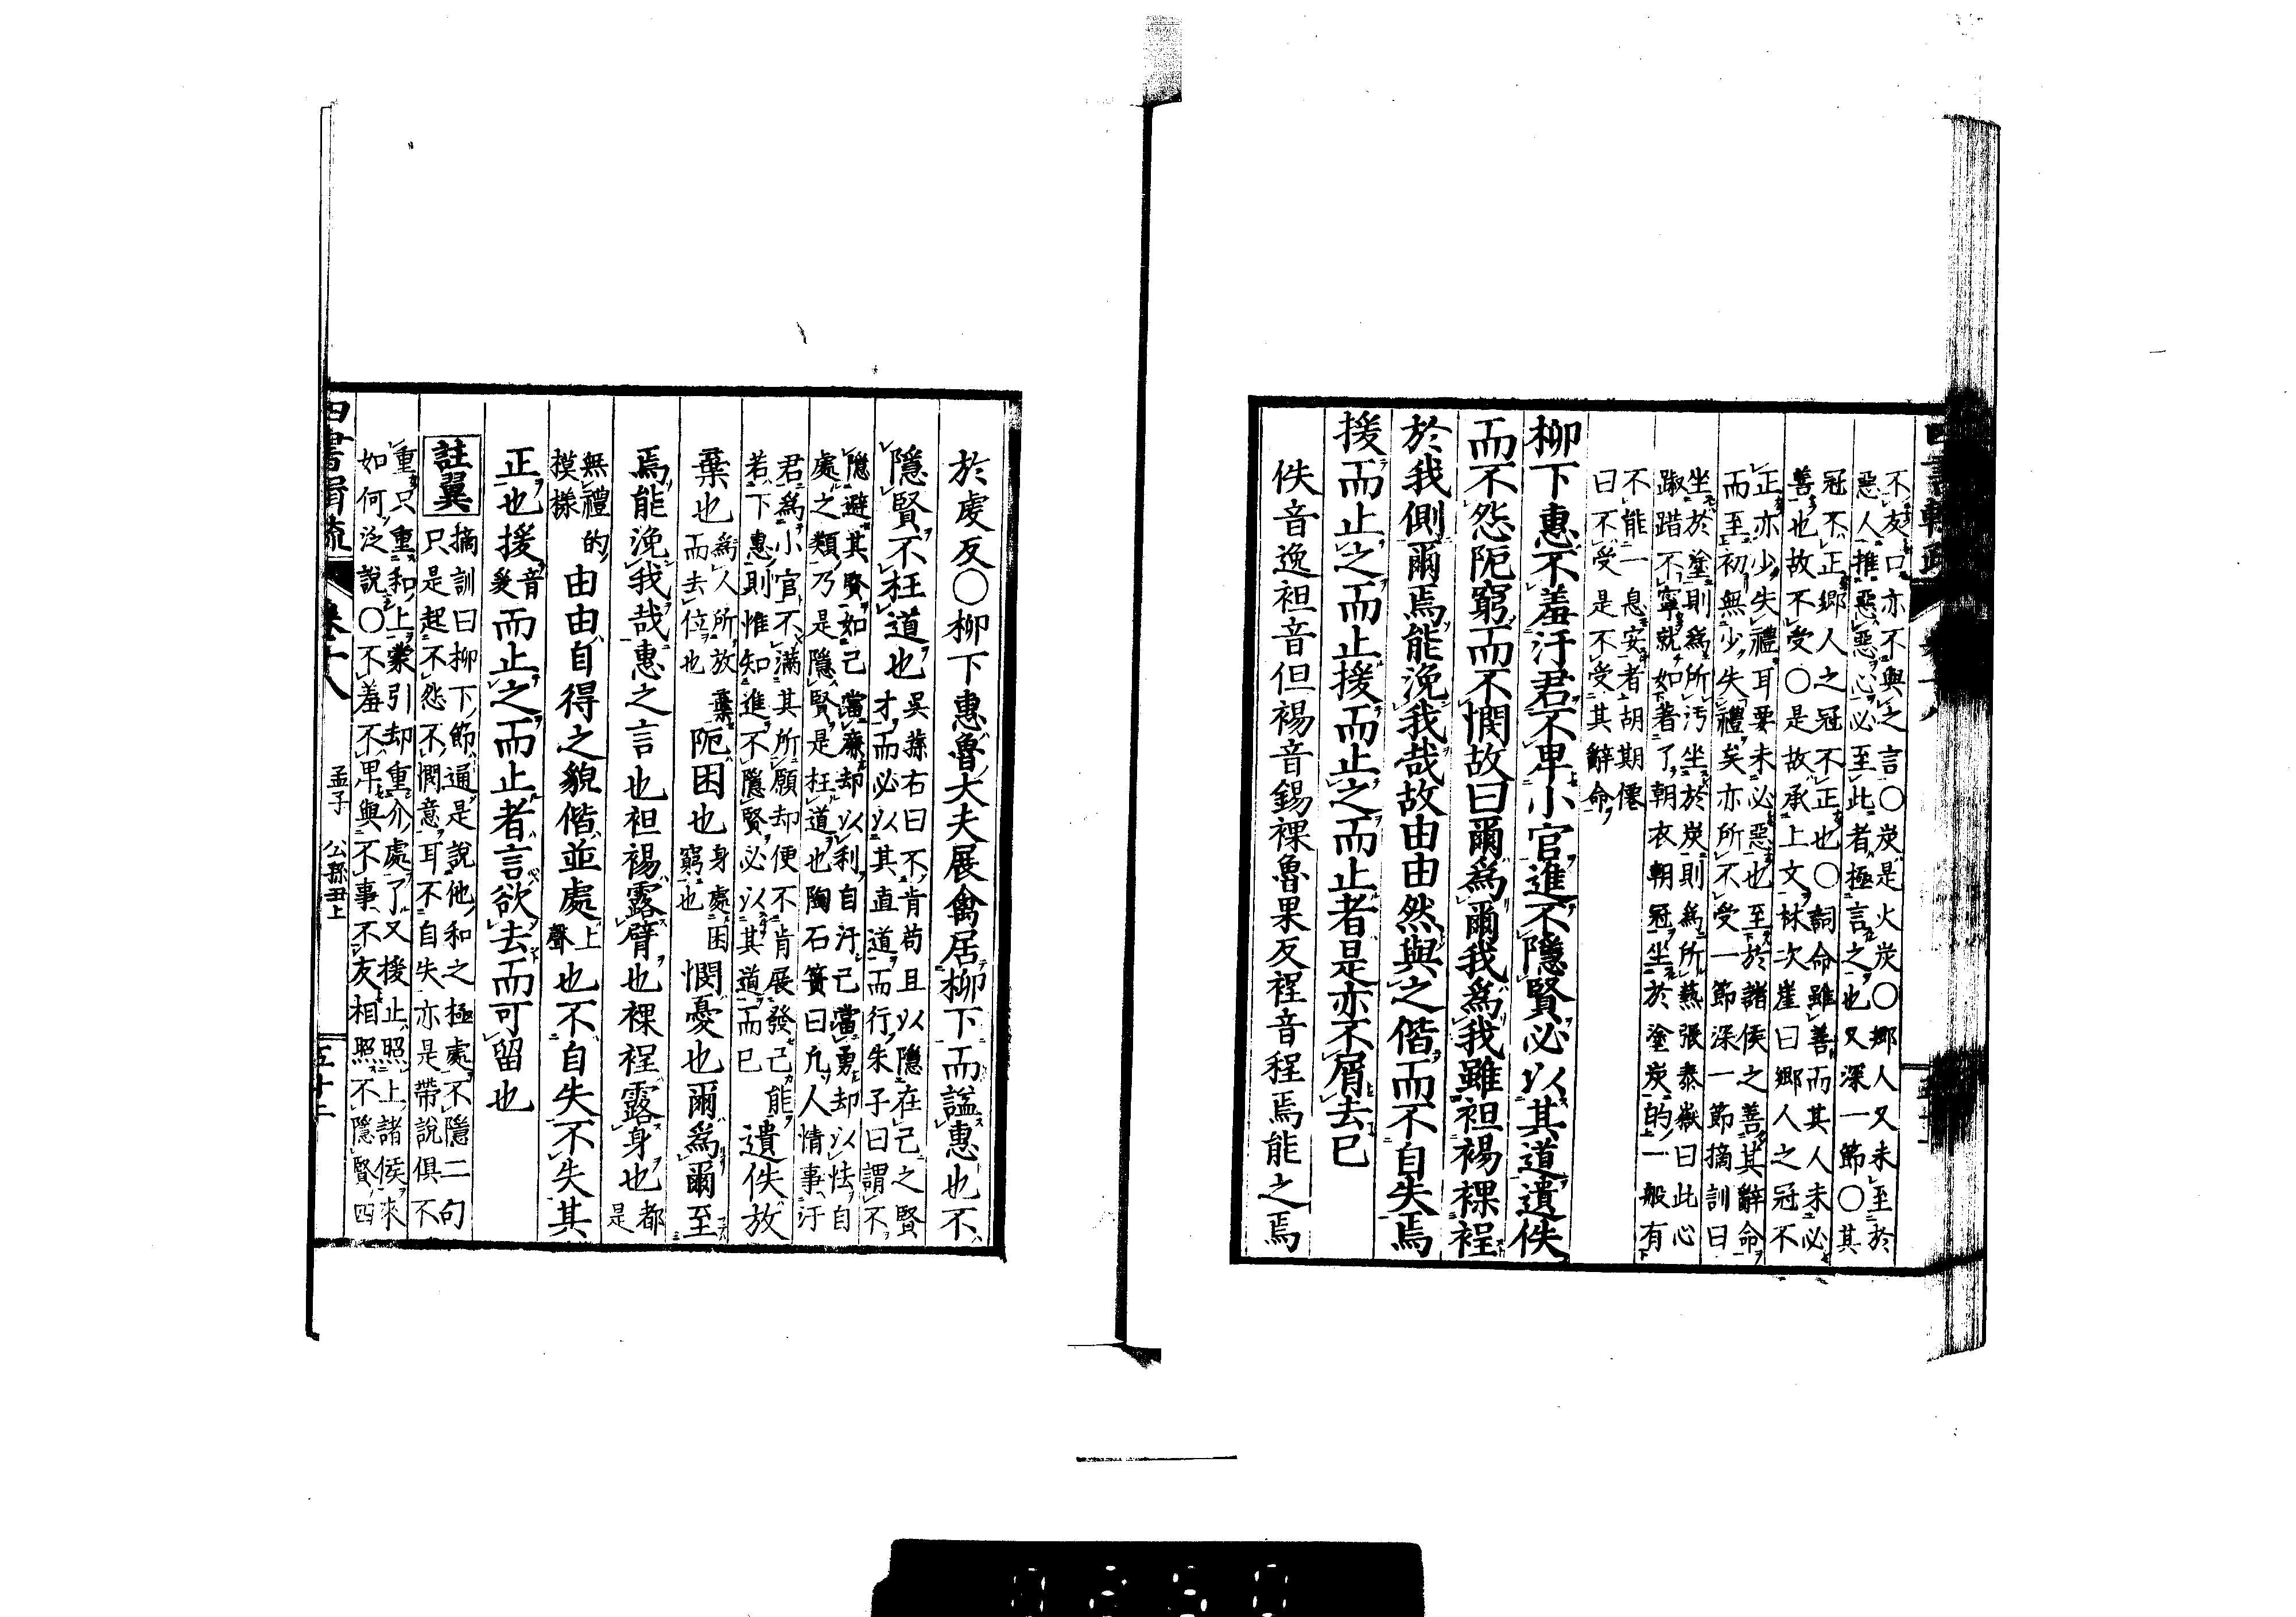 不友口亦不與之言○炭是火炭○鄉人又未至於
惡人推惡惡心必至此者極言之也又深一節○其
冠不正鄉人之冠不正也○詞命雖善而其人未必
善也故不受○是故承上文林次崖曰鄉人之冠不
正亦少失禮耳要未必惡也至於諸侯之善其辭命
而至初無少失禮矣亦所不受一節深一節摘訓曰
坐於塗則為所污坐於炭則為所熱張泰嶽曰此心
踧踖不寧就如著了朝衣朝冠坐於塗炭的一般有
不能一息安者胡期僊
曰不受是不受其辭命
柳下惠不羞汙君不卑小官進不隱賢必以其道遺佚
而不怨阨窮而不憫故曰爾為爾我為我雖袒裼裸裎
於我側爾焉能浼我哉故由由然與之偕而不自失焉
援而止之而止援而止之而止者是亦不屑去已
佚音逸袒音但裼音錫裸魯果反裎音程焉能之焉
於虔反○柳下惠魯大夫展禽居柳下而諡惠也不
隱賢不枉道也
吳蓀右曰不肯苟且以隱在己之賢
才而必以其直道而行朱子曰謂不
隱避其賢如己當廉却以利自汙己當勇却以怯自
處之類乃是隱賢是枉道也陶石簣曰凡人情事汙
君為小官不滿其所願却便不肯展發己能
若下惠則惟知進不隱賢必以其道而已
遺佚放
棄也
為人所放棄
而去位也
阨困也
身處困
窮也
憫憂也爾為爾至
焉能浼我哉惠之言也袒裼露臂也裸裎露身也
都是
無禮的
模樣
由由自得之貌偕並處
上聲
也不自失不失其
正也援
音爰
而止之而止者言欲去而可留也
註翼
摘訓曰柳下節通是說他和之極處不隱二句
只是起不怨不憫意耳不自失亦是帶說俱不
重只重和上蒙引却重介處了又援止照上諸侯來
如何泛說○不羞不卑與不事不友相照不隱賢四
孟子 公孫丑上